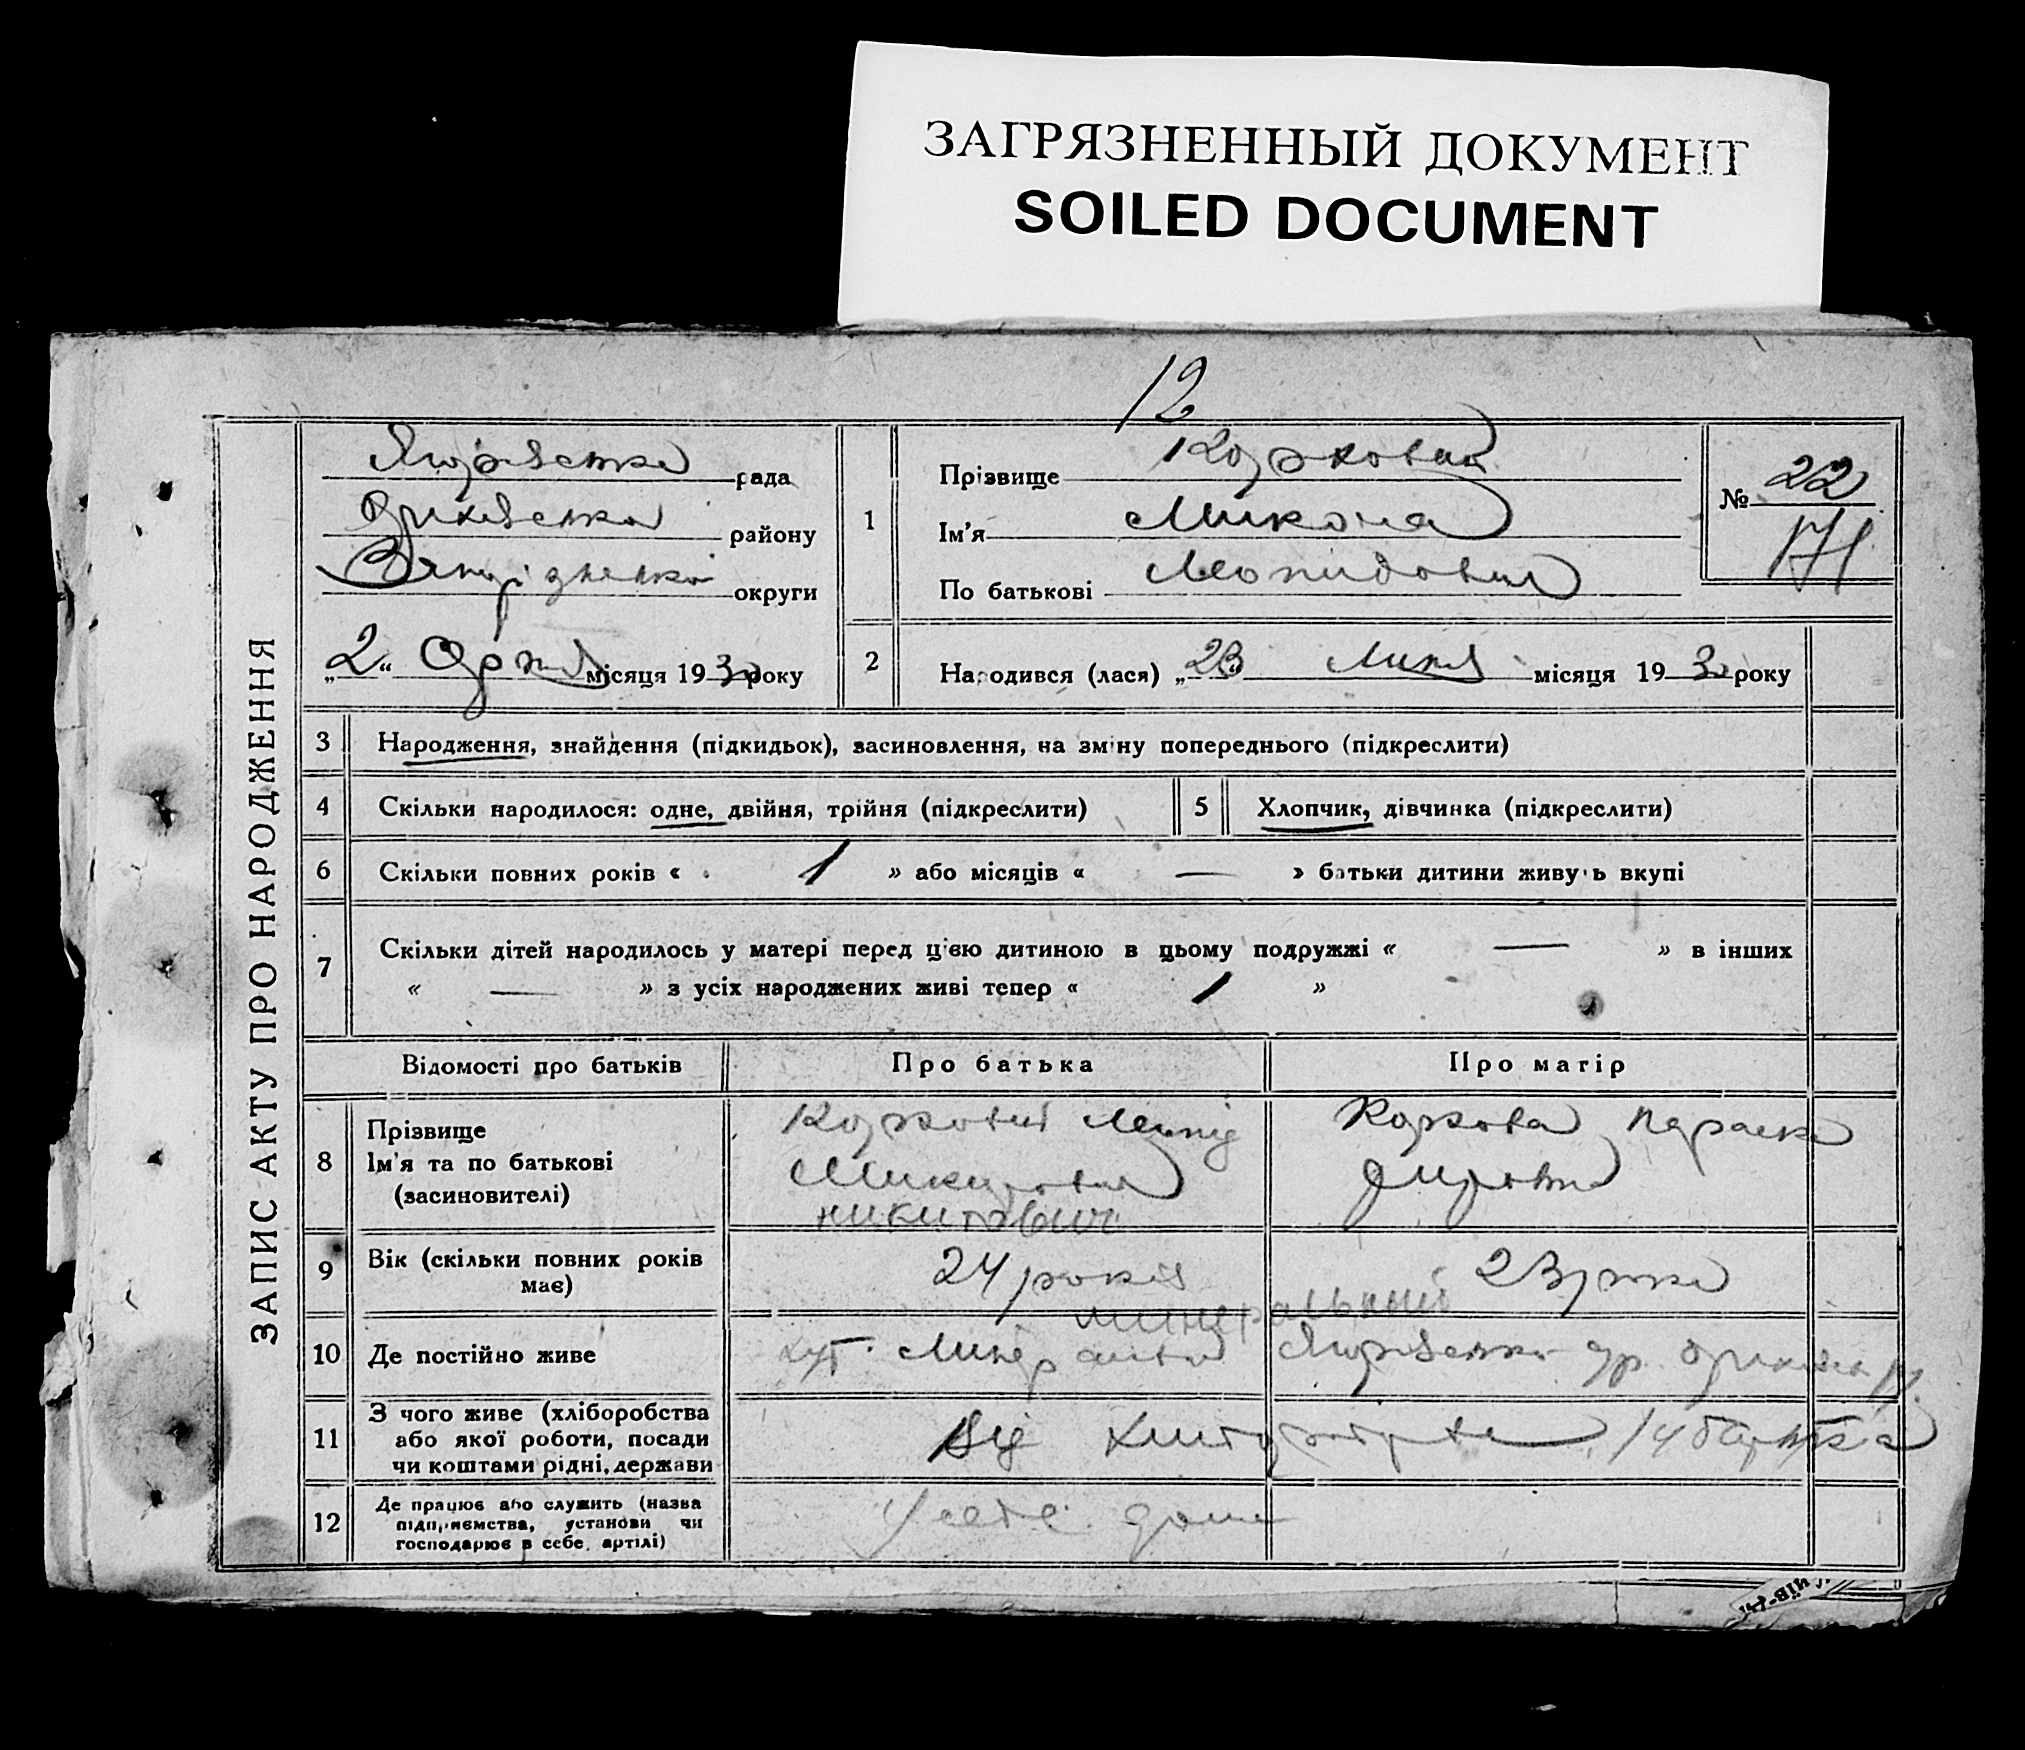 ЗАГРЯЗНЕННЫЙ ДОКУМЕНТ
SOILED DOCUMENT
12
ЗАПИС АКТУ ПРО НАРОДЖЕННЯ
рада
району
округи
„2“ місяця 1930 року
1
Прізвище
Ім'я Микола
По батькові
№ 22
171
2 Народився (лася) „23 Липня місяця 1930 року
3 Народження, знайдення (підкидьок), засиновлення, на зміну попереднього (підкреслити)
4 Скільки народилося: одне, двійня, трійня (підкреслити)
5 Хлопчик, дівчинка (підкреслити)
6 Скільки повних років « 1 » або місяців « — » батьки дитини живуть вкупі
7 Скільки дітей народилось у матері перед цією дитиною в цьому подружжі « — » в інших
« — » з усіх народжених живі тепер « 1 »
Відомості про батьків Про батька Про матір
8 Прізвище
Ім'я та по батькові
(засиновителі)
никитович
9 Вік (скільки повних років
має)
24 років
23 роки
минеральний
10 Де постійно живе
хут.
11 З чого живе (хліборобства
або якої роботи, посади
чи коштами рідні, держави
Від
12 Де працює або служить (назва
підприємства, установи чи
господарює в себе, артілі)
У себе дома